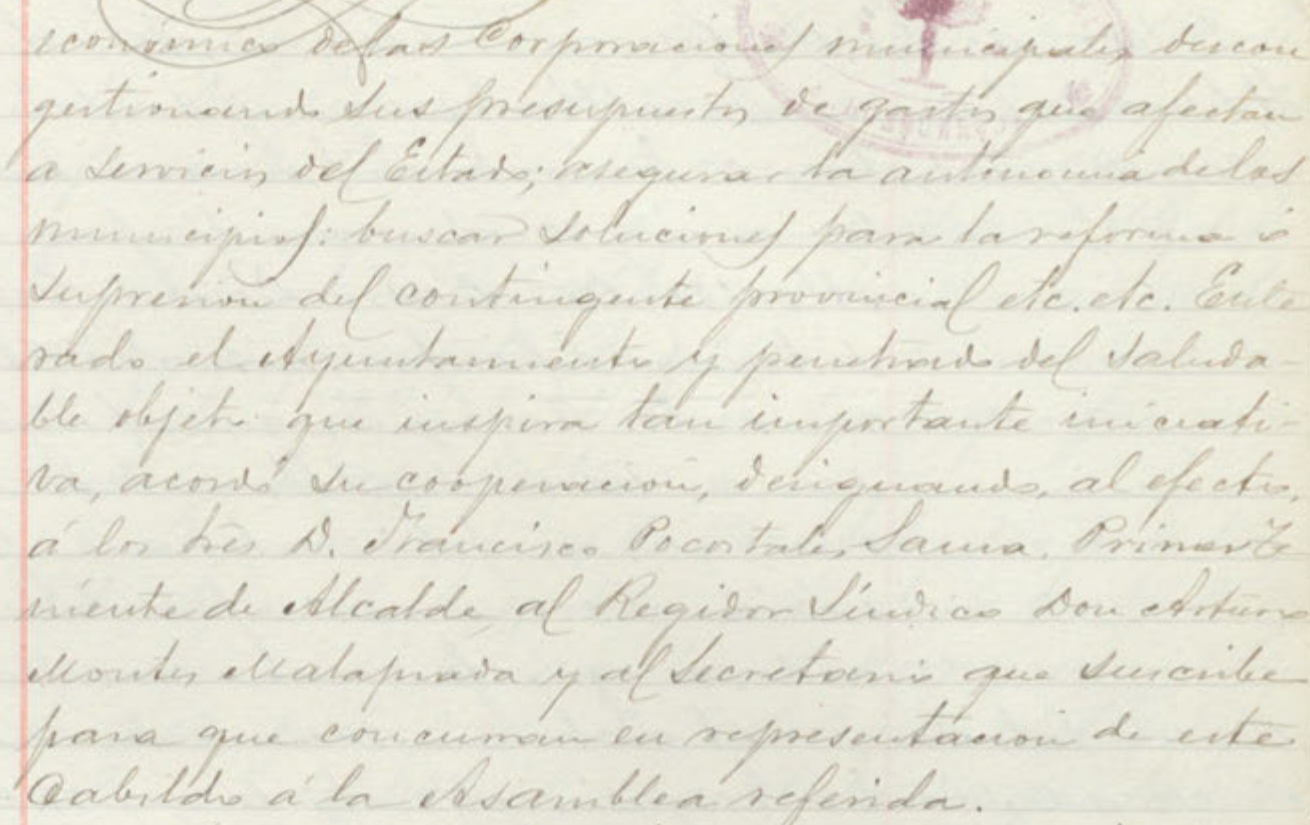 económica de las Corporaciones municipales, descon
gestionando sus presupuestos de gastos que afectan
a servicios del Estado; asegurar la autonomía de los
municipios: buscar soluciones para la reforma ó
supresion del contingente provincial etc. etc. Ente
rado el Ayuntamiento y penetrado del saluda-
ble objeto que inspira tan importante iniciati-
va, acordó su cooperación, designando, al efecto,
á los tres D. Francisco Pocostales Sama, Primer Te
niente de Alcalde, al Regidor Síndico Don Arturo
Montes Malaprada y al Secretario que suscribe
para que concurran en representación de este
Cabildo á la Asamblea referida.